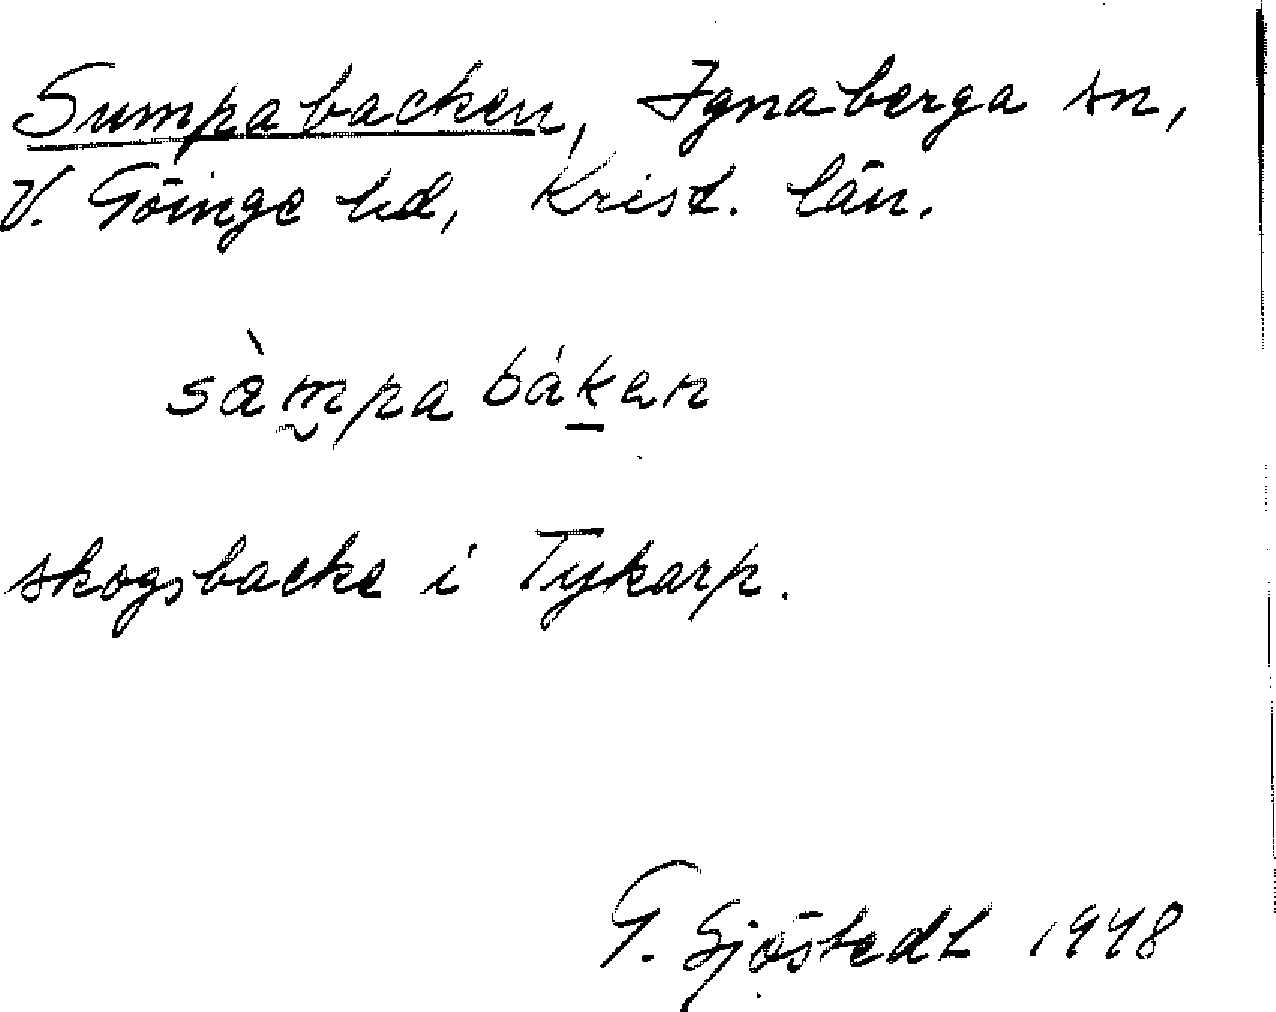 Sumpabacken, Ignaberga sn,
V. Göinge hd, Krist. län.
sàmpa báken
skogsbacke i Tykarp.
G. Sjöstedt 1948